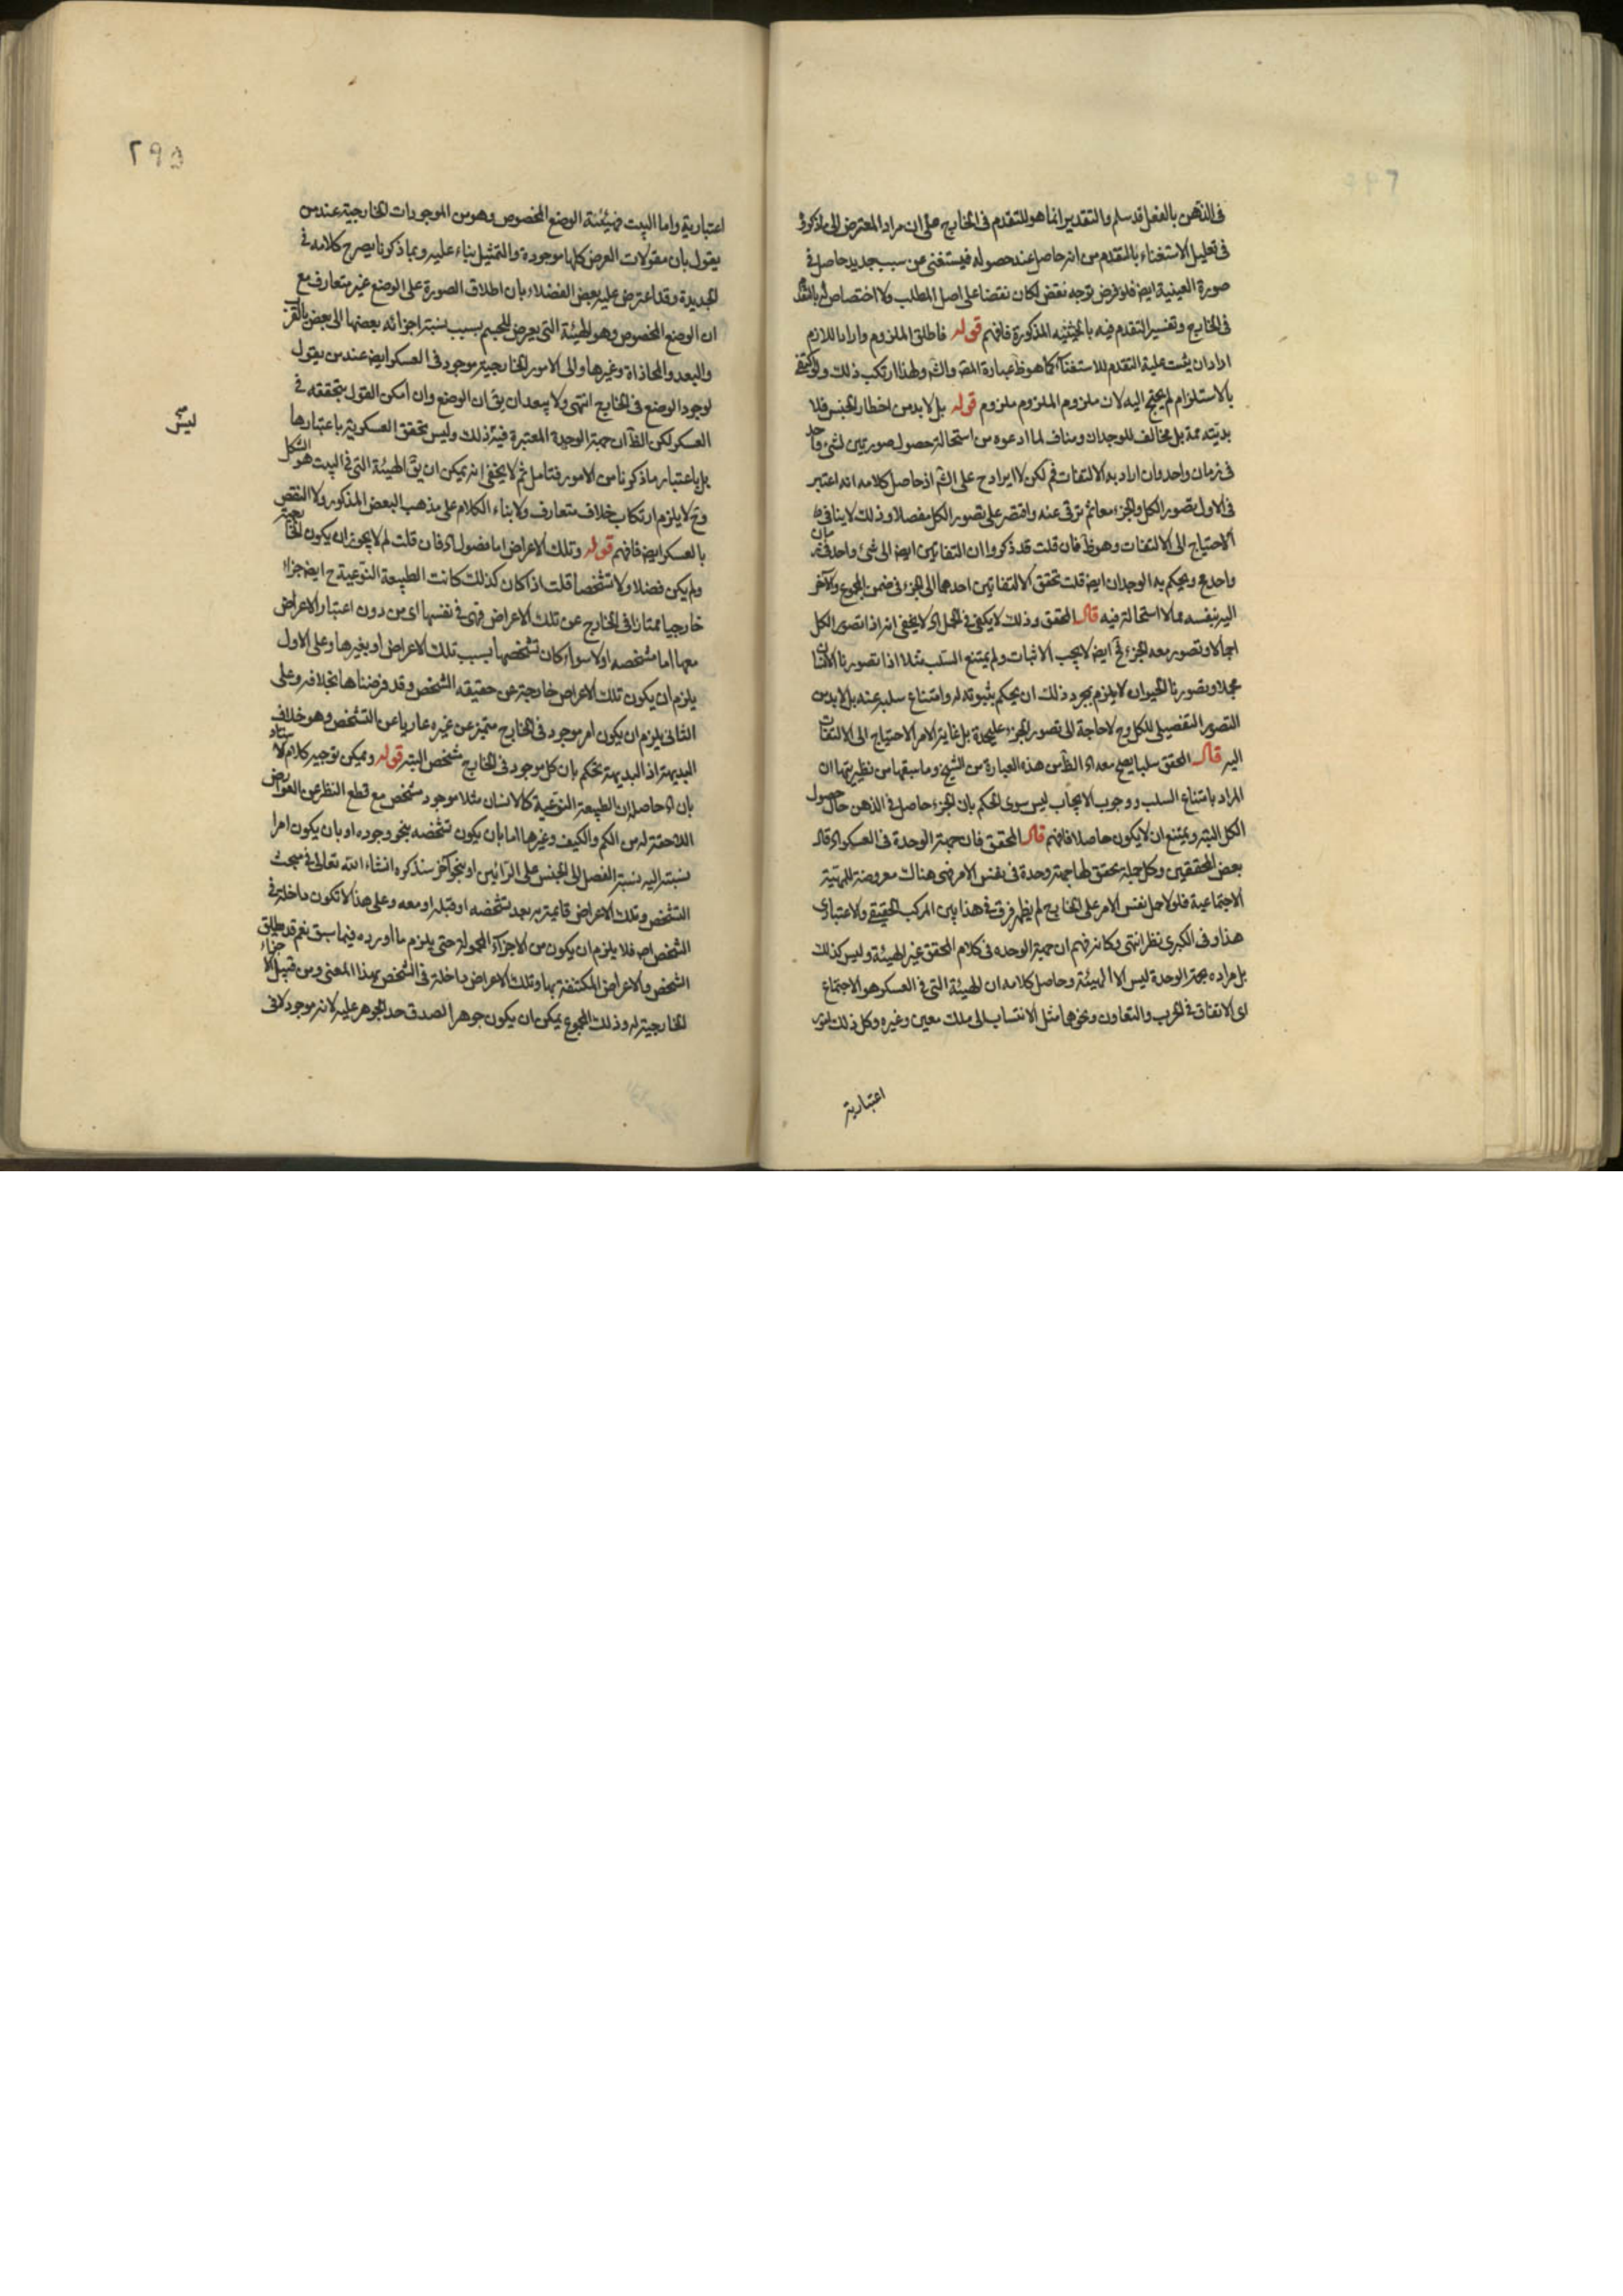 فى الذهن بالفعل قد سلم والتقدير انما هو للتقدم فى الخارج على ان مراد المعترض
فى تعليل الاستغناء بالتقدم من انه حاصل عند حصوله فيستغنى عن سبب جديد حاصل فى
صورة العينية ايض فلو فرض توجه نقض لكان نقضا على اصل المطلب ولا اختصاص له
فى الخارج وتفسير التقدم فيه بالحيثية المذكورة فافهم قوله فاطلق الملزوم واراد اللازم
اراد ان يثبت علية التقدم للاستغناء كما هو ظ عبارة المص والش ولهذا ارتكب ذلك ولو اكتفى
بالاستلزام لم يحتج اليه لان ملزوم الملزوم ملزوم قوله بل لا بد من اخطار الجنس فلا
بل مخالف للوجدان ومناف لما ادعوه من استحالة حصول صورتين لشئ واحد
فى زمان واحد وان اراد به الالتفات فم لكن لا ايراد ح على الش اذ حاصل كلامه انه اعتبر
فى الاول تصور الكل والجزء معا ثم ترقى عنه واقتصر على تصور الكل مفصلا وذلك لا ينافى
الاحتياج الى الالتفات وهو ظ فان قلت قد ذكروا ان التفاتين ايض الى شئ واحد فى زمان
واحد مح ويحكم به الوجدان ايض قلت تحقق الالتفاتين احدهما الى الجزء فى ضمن المجموع والآخر
اليه بنفسه مما لا استحالة فيه قال المحقق وذلك لا يكفى فى الحمل اى لا يخفى انه اذا تصور الكل
اجمالا وتصور معه الجزء فح ايض لا يجب الاثبات ولم يمتنع السلب مثلا اذا تصورنا الانسان
مجملا وتصورنا الحيوان لا يلزم بمجرد ذلك ان يحكم بثبوته له وامتناع سلبه عنه بل لا بد من
التصور التفصيلى للكل وح لا حاجة الى تصور الجزء عليحدة بل غاية الامر الاحتياج الى الالتفات
اليه قال المحقق سلبا يصح معه اه الظ من هذه العبارة من الشيخ وما سبقها من نظيرتها ان
المراد بامتناع السلب ووجوب الايجاب ليس سوى الحكم بان الجزء حاصل فى الذهن حال حصول
الكل البتة ويمتنع ان لا يكون حاصلا فافهم قال المحقق فان جهة الوحدة فى العسكر اه قال
بعض المحققين وكل جملة تحقق لها جهة وحدة فى نفس الامر فهى هناك معروضة للهيئة
الاجتماعية فلو لا حمل نفس الامر على الخارج لم يظهر فرق فى هذا بين المركب الحقيقى والاعتبارى
هذا وفى الكبرى نظر انتهى وكانه فهم ان جهة الوحدة فى كلام المحقق غير الهيئة وليس كذلك
بل مراده بجهة الوحدة ليس الا الهيئة وحاصل كلامه ان الهيئة التى فى العسكر هو الاجتماع
اى الاتفاق فى الحرب والتعاون ونحوها مثل الانتساب الى ملك معين وغيره وكل ذلك امور
اعتبارية
٢٩٥
اعتبارية واما البيت فهيئته الوضع المخصوص وهو من الموجودات الخارجية عند من
يقول بان مقولات العرض كلها موجودة والتمثيل بناء عليه وبما ذكرنا يصرح كلامه فى
الجديدة وقد اعترض عليه بعض الفضلاء بان اطلاق الصورة على الوضع غير متعارف مع
ان الوضع المخصوص وهو الهيئة التى يعرض للجسم بسبب نسبة اجزائه بعضها الى بعض بالقرب
والبعد والمحاذاة وغيرها والى الامور الخارجية موجود فى العسكر ايض عند من يقول
لوجود الوضع فى الخارج انتهى ولا يبعد ان يق ان الوضع وان امكن القول بتحققه فى
العسكر لكن الظ ان جهة الوحدة المعتبرة فيه ذلك وليس تحقق العسكرية باعتبارها
بل باعتبار ما ذكرنا من الامور فتامل ثم لا يخفى انه يمكن ان يق الهيئة التى فى البيت هو الشكل
وح لا يلزم ارتكاب خلاف متعارف ولا بناء الكلام على مذهب البعض المذكور ولا النقض
بالعسكر ايض فافهم قوله وتلك الاعراض اما فصول اه فان قلت لم لا يجوز ان يكون
ولم يكن فصلا ولا تشخصا قلت اذا كان كذلك كانت الطبيعة النوعية ح ايض جزا
خارجيا ممتازا فى الخارج عن تلك الاعراض فهى فى نفسها اى من دون اعتبار الاعراض
معها اما مشخصة اولا سواء كان تشخصها بسبب تلك الاعراض او بغيرها وعلى الاول
يلزم ان يكون تلك الاعراض خارجة عن حقيقة الشخص وقد فرضناها بخلافه وعلى
الثانى يلزم ان يكون امر موجود فى الخارج متميز عن غيره عاريا عن التشخص وهو خلاف
البديهة اذ البديهة تحكم بان كل موجود فى الخارج مشخص البتة قوله ويمكن توجيه كلام الاستاد
بان اه حاصله ان الطبيعة النوعية كالانسان مثلا موجود مشخص مع قطع النظر عن العوارض
اللاحقة له من الكم والكيف وغيرها اما بان يكون تشخصه بنحو وجوده او بان يكون امرا
نسبته اليه نسبة الفصل الى الجنس على الرائين او بنحو آخر سنذكره انشاء الله تعالى فى مبحث
التشخص وتلك الاعراض قايمة به بعد تشخصه او قبله او معه وعلى هذا لا تكون داخلة فى
الشخص اص فلا يلزم ان يكون من الاجزاء المحمولة حتى يلزم ما اورده فيما سبق نعم قد يطلق
الشخص والاعراض المكتنفة بها وتلك الاعراض داخلة فى الشخص بهذا المعنى ومن قبيل الاجزاء
الخارجية له وذلك المجموع يمكن ان يكون جوهرا لصدق حد الجوهر عليه لانه موجود لا فى
ليس